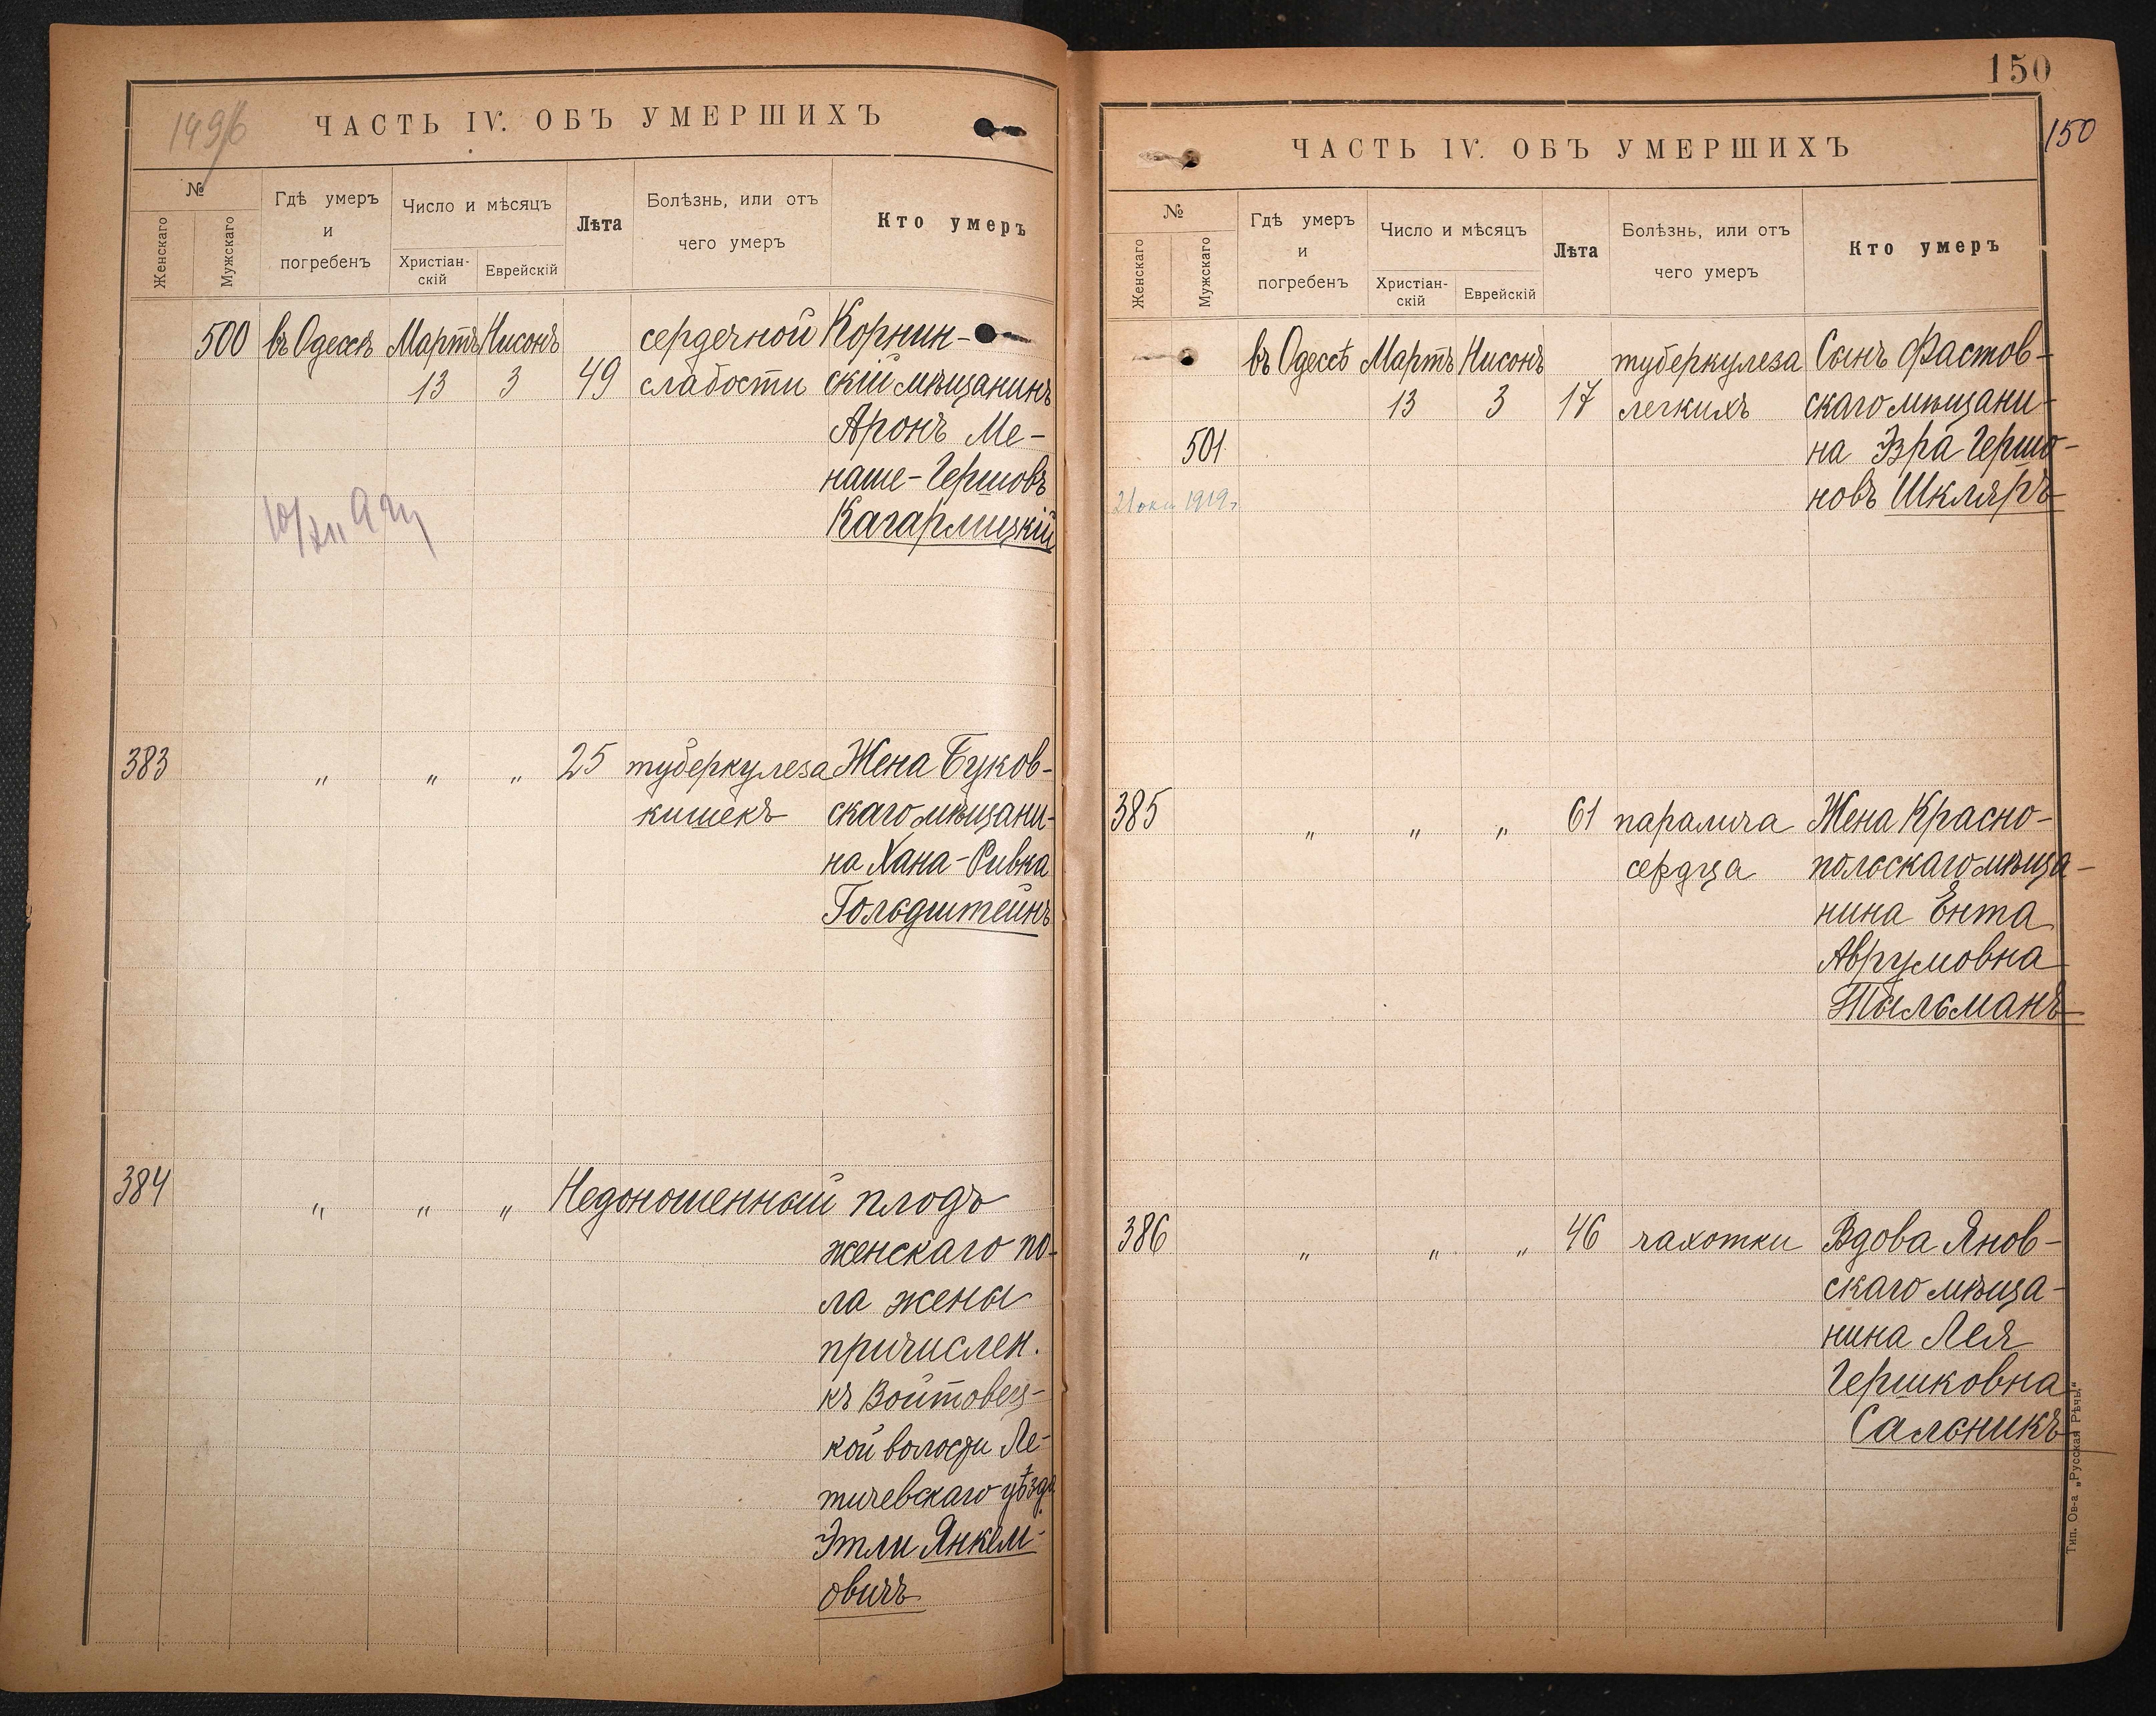 149б
ЧАСТЬ IV. ОБЪ УМЕРШИХЪ
№
Женскаго
Мужскаго
Гдѣ умеръ
и
погребенъ
Число и мѣсяцъ
Христіан-
скій
Еврейскій
Лѣта
Болѣзнь, или отъ
чего умеръ
Кто умеръ
500 въ Одессѣ Мартъ Нисонъ сердечной Корнин-
13 3 49 слабости скій мѣщанинъ
Аронъ Ме-
наше-Гершовъ
Кагарлицкій
383 " " " 25 туберкулеза Жена Буков-
кишекъ скаго мѣщани-
на Хана-Ривка
Гольдштейнъ
384 " " " Недоношенный плодъ
женскаго по-
ла жены
причислен.
къ Войтовец-
кой волости Ле-
тичевскаго уѣзда
Этли Янкел-
овичъ
150
150
ЧАСТЬ IV. ОБЪ УМЕРШИХЪ
№
Женскаго
Мужскаго
Гдѣ умеръ
и
погребенъ
Число и мѣсяцъ
Христіан-
скій
Еврейскій
Лѣта
Болѣзнь, или отъ
чего умеръ
Кто умеръ
въ Одессѣ Мартъ Нисонъ туберкулеза Сынъ Фастов-
13 3 17 легкихъ скаго мѣщани-
501 на Эзра Гершо-
новъ Шкляръ
1919г.
385 " " " 61 паралича Жена Красно-
сердца польскаго мѣща-
нина Ента
Аврумовна
Тыльманъ
386 " " " 46 чахотки Вдова Янов-
скаго мѣща-
нина Лея
Гершковна
Сальникъ
Тип. Ов-а „Русская Рѣчь"